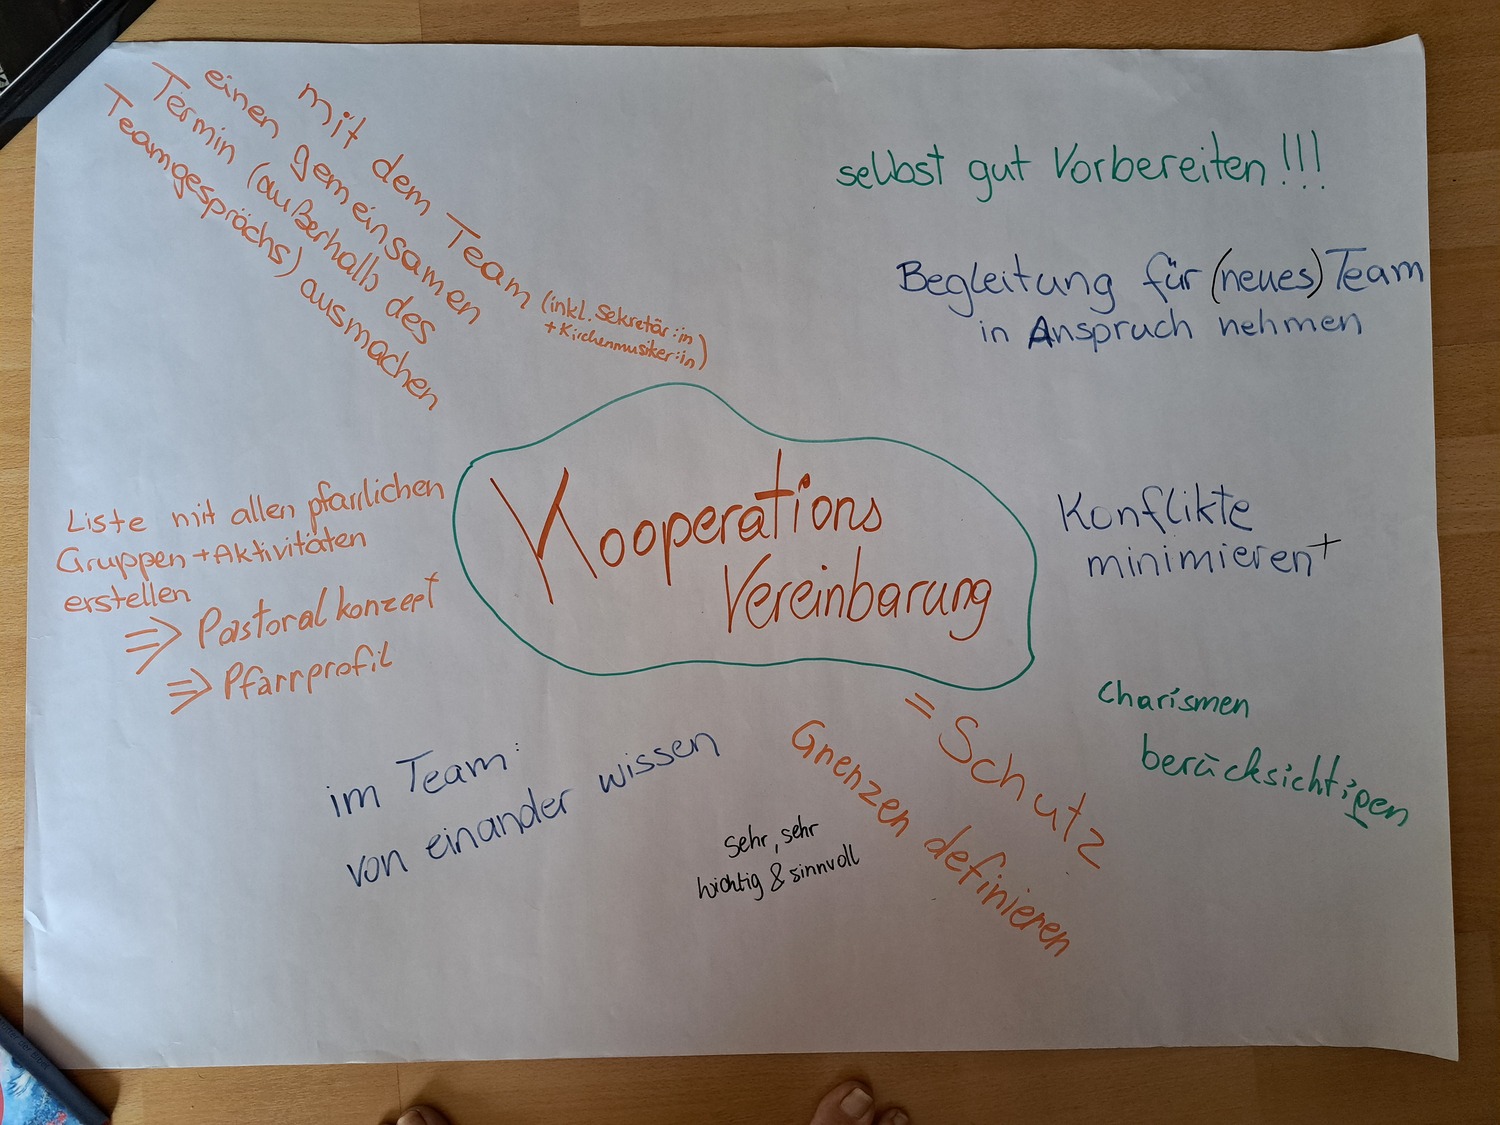 mit dem Team (inkl. Sekretär:in
+ Kirchenmusiker:in)
einen gemeinsamen
Termin (außerhalb des
Teamgesprächs) ausmachen
selbst gut Vorbereiten!!!
Begleitung für (neues) Team
in Anspruch nehmen
Kooperations
Vereinbarung
Liste mit allen pfarrlichen
Gruppen + Aktivitäten
erstellen
=> Pastoralkonzept +
=> Pfarrprofil
Konflikte
minimieren +
Charismen
berücksichtigen
= Schutz
Grenzen definieren
im Team:
von einander wissen
sehr, sehr
wichtig & sinnvoll